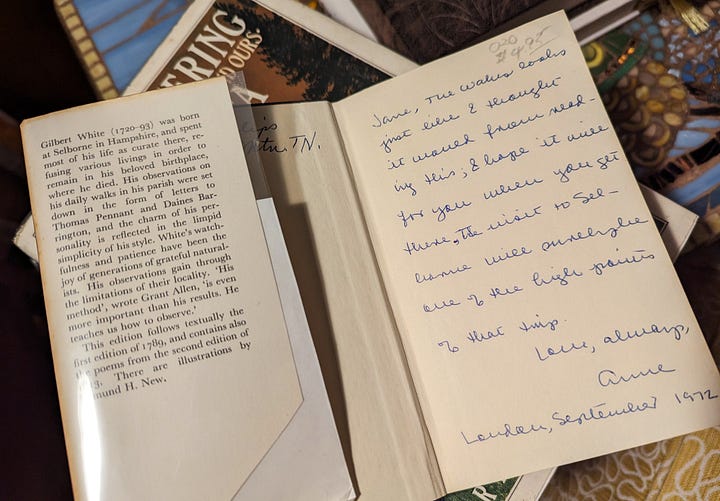 ERING
A
D OURS.
Gilbert White (1720-93) was born
at Selborne in Hampshire, and spent
most of his life as curate there, re-
fusing various livings in order to
remain in his beloved birthplace,
where he died. His observations on
his daily walks in his parish were set
down in the form of letters to
Thomas Pennant and Daines Bar-
rington, and the charm of his per-
sonality is reflected in the limpid
simplicity of his style. White's watch-
fulness and patience have been the
joy of generations of grateful natural-
ists. His observations gain through
the limitations of their locality. 'His
method', wrote Grant Allen, 'is even
more important than his results. He
teaches us how to observe.'
This edition follows textually the
first edition of 1789, and contains also
the poems from the second edition of
3. There are illustrations by
mund H. New.
TN.
Jane, The Wakes looks
just like I thought
it would from read-
ing this; I hope it will
for you when you get
there. The visit to Sel-
borne will surely be
one of the high points
of that trip.
Love, always,
Anne
London, September 1972